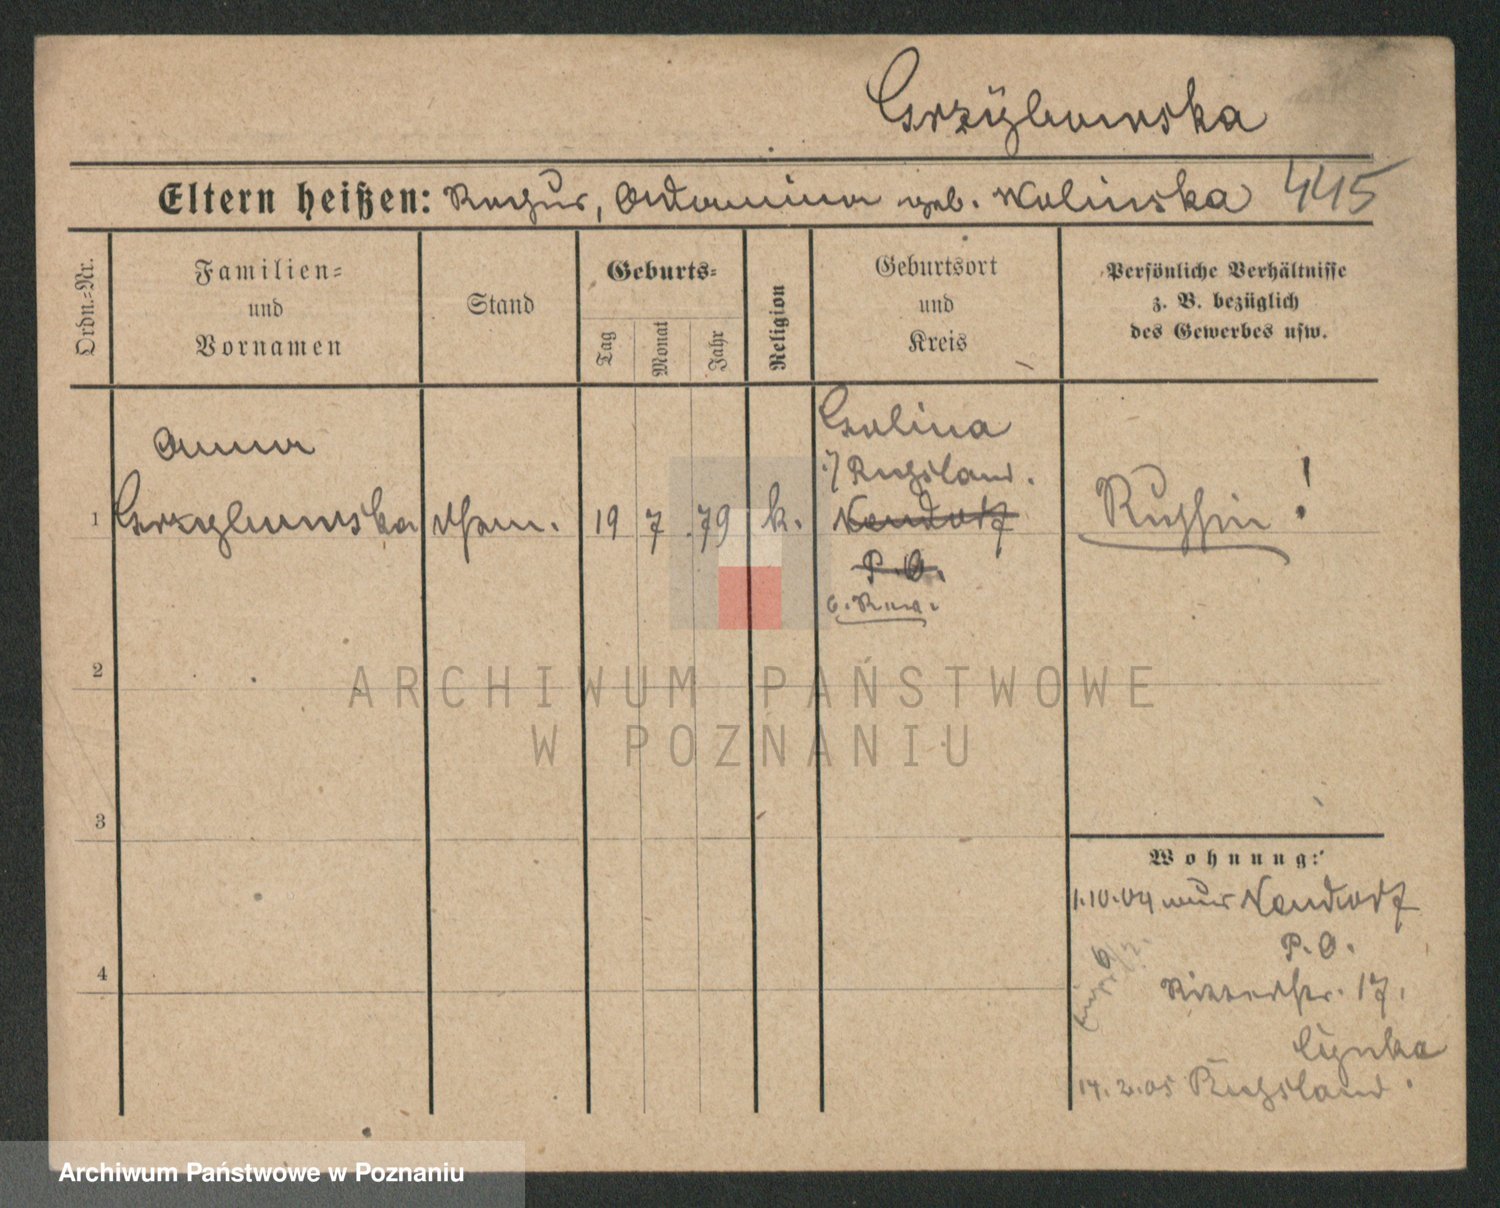 Grzÿbowska
Eltern heißen: geb. Wolinska 445
Ordn.-Nr.
Familien-
und
Vornamen
Stand
Geburts-
Tag
Monat
Jahr
Religion
Geburtsort
und
Kreis
Persönliche Verhältnisse
z. B. bezüglich
des Gewerbes usw.
Anna
Golina
Russland.
1 Grzybowska 19 7 79 k. Neudorf Russin!
P. O.
2
ARCHIWUM PAŃSTWOWE
W POZNANIU
3
Wohnung:
1.10.04 Neudorf
P. O.
4
Ritterstr. 17.
14.2.05 Russland.
Archiwum Państwowe w Poznaniu